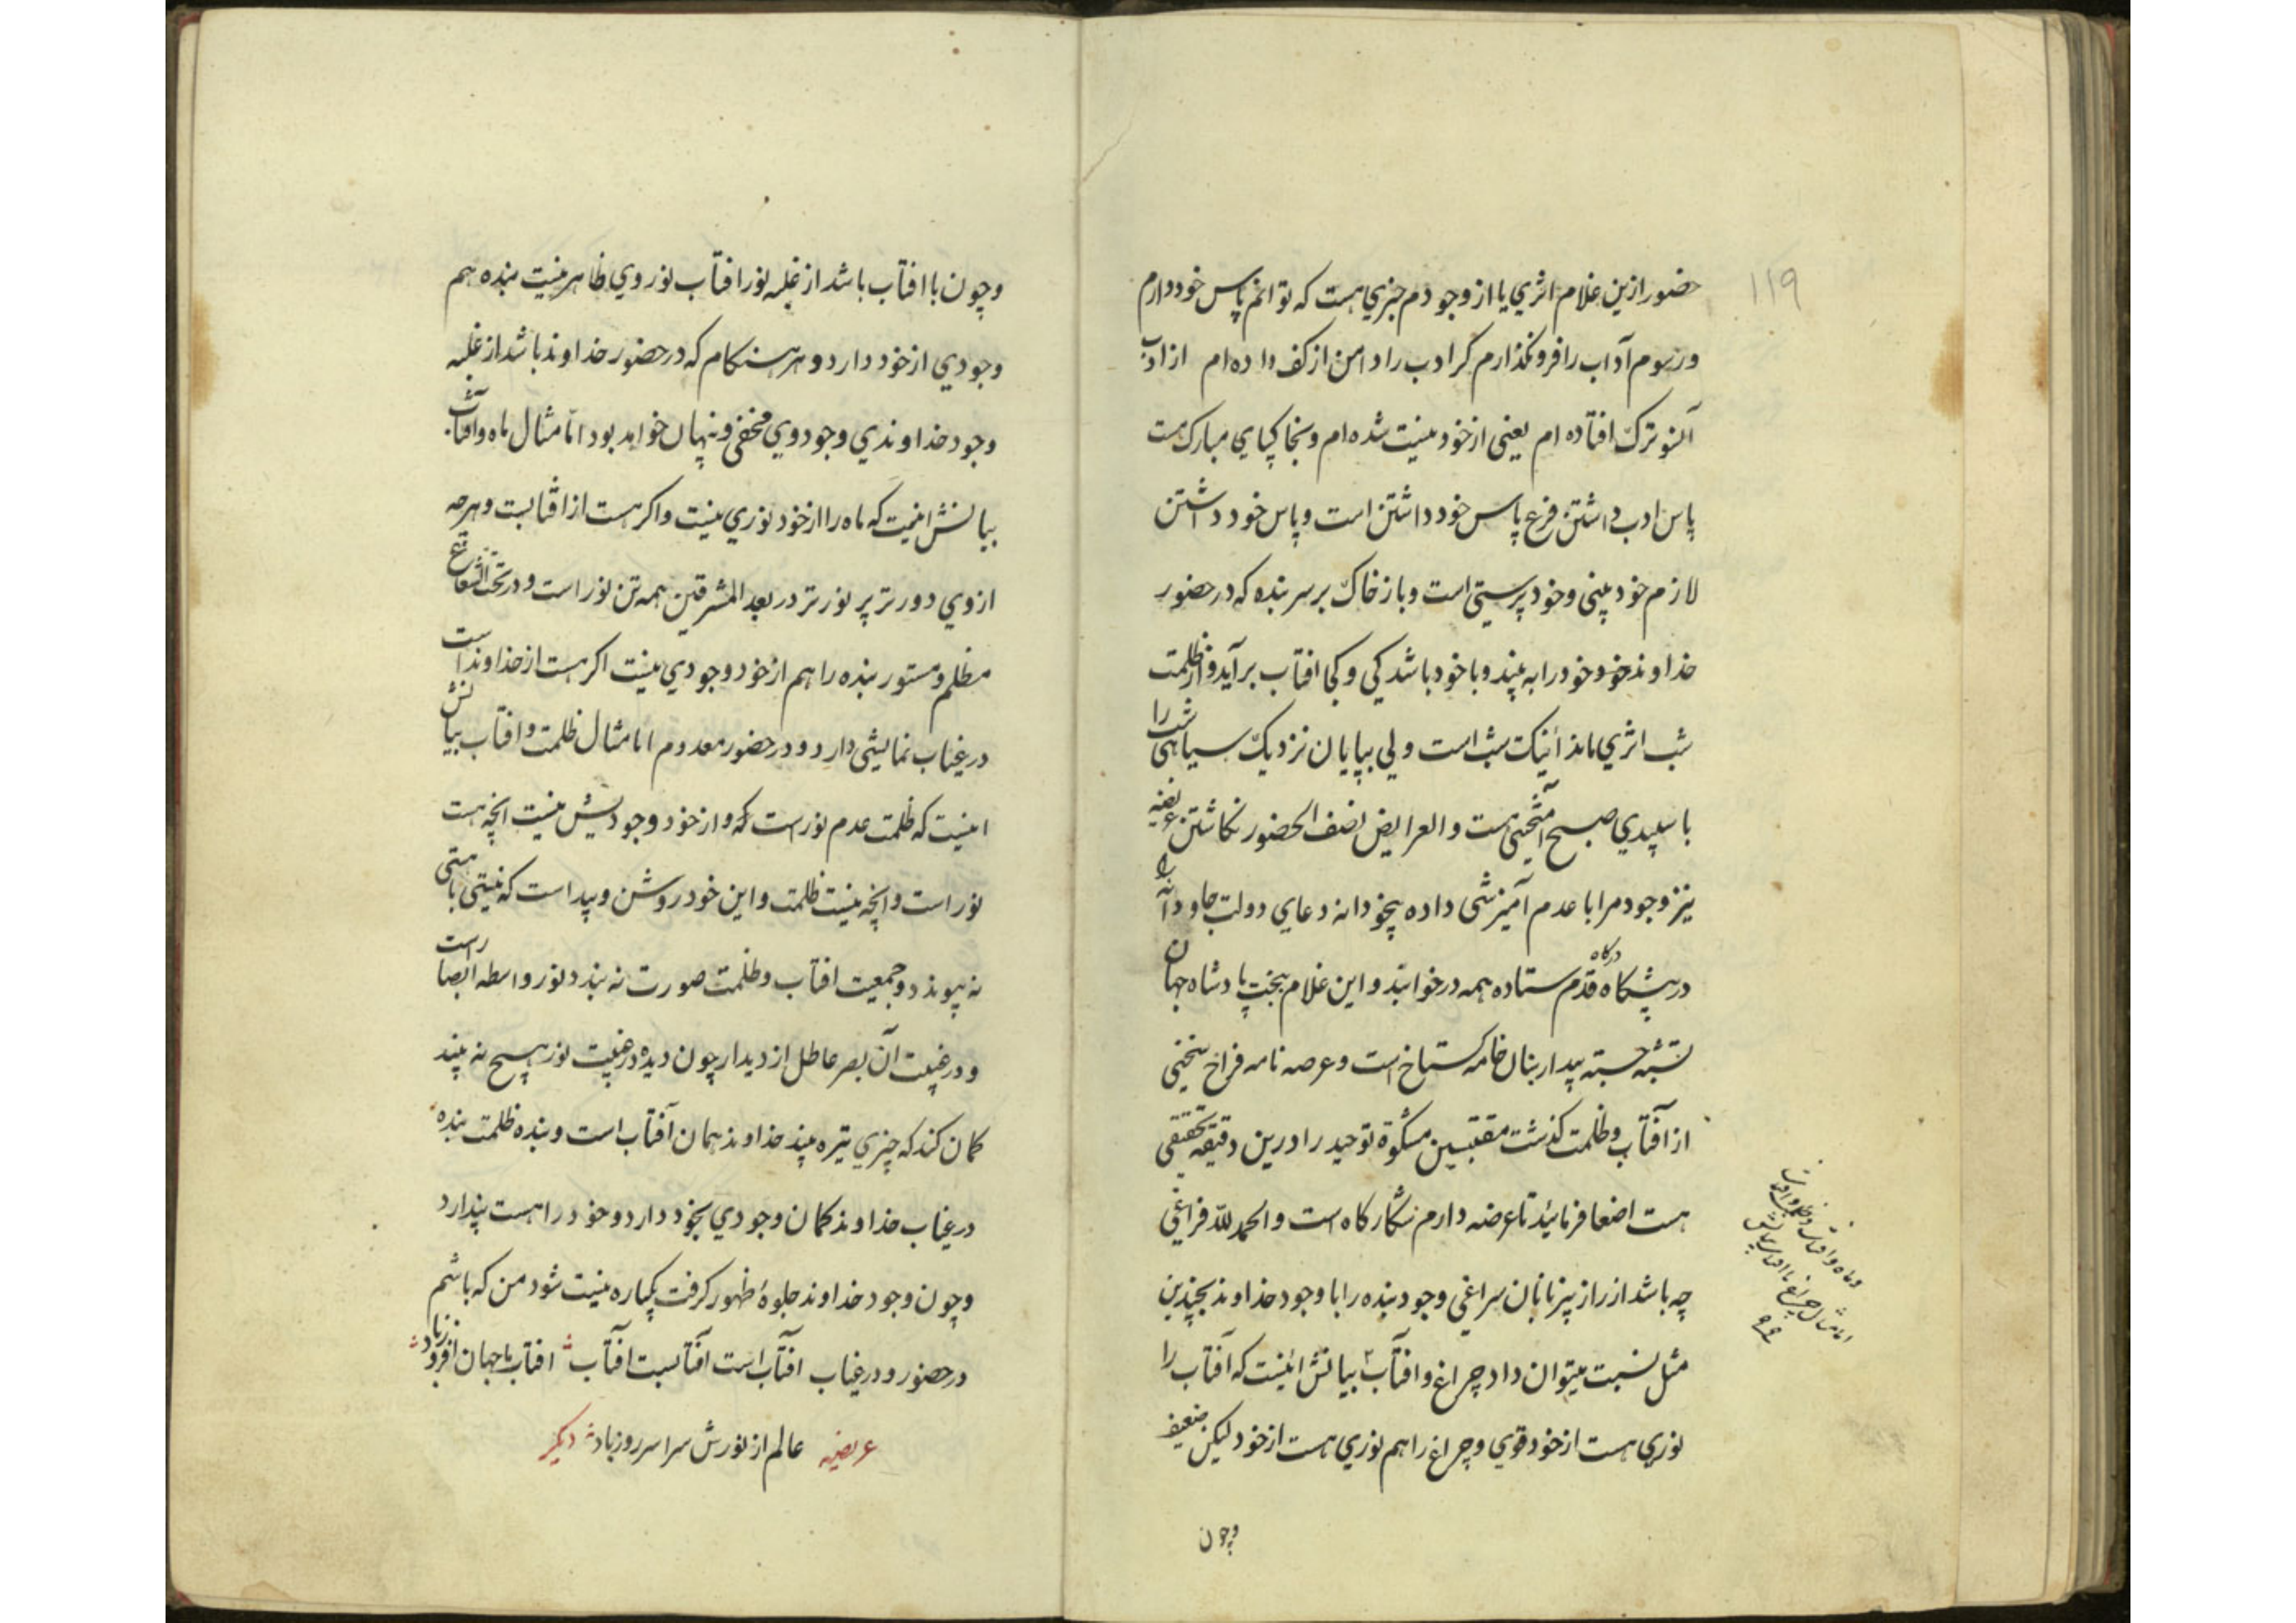 ۱۱۹
حضور ازین غلام اثری یا از وجودم خبری هست که توانم پاس خود دارم
ورسوم آداب را فرو نگذارم گر ادب را دامن از کف داده ام از ادب
آنسوترک افتاده ام یعنی از خود نیست شده ام وبخاکپای مبارک هست
پاس ادب داشتن فرع پاس خود داشتن است وپاس خود داشتن
لازم خود بینی وخود پرستی است وباز خاک بر سر بنده که در حضور
خداوند خود خود را به بیند وبا خود باشد کی وکجا افتاب برآید واز ظلمت
شب اثری ماند اینک شب است ولی بپایان نزدیک سیاهی شب را
با سپیدی صبح آمیختگی هست والعرایض نصف الحضور نگاشتن عریضه
نیز وجود مرا با عدم آمیزشی داده بیخودانه دعای دولت جاودانه را
در پیشگاه قدم ستاده همه در خوابند واین غلام ببخت پادشاه جهان
درگاه
نشسته بیدار بنان خامه گستاخ است وعرصه نامه فراخ سخنی
از آفتاب وظلمت گذشت مقتبسین مشکوة توحید را درین دقیقه تحقیقی
هست اصغا فرمائید تا عرضه دارم نه گار گاه است والحمد لله فراغی
چه باشد از راز پنهانان سراغی وجود بنده را با وجود خداوند بچندین
مثل نسبت میتوان داد چراغ وافتاب بیانش اینست که آفتاب را
نوری هست از خود قوی وچراغ را هم نوری هست از خود لیکن ضعیف
وماه وافتاب وظلمت وافتاب
اما مثال چراغ با افتاب بیانش
وچون
وچون با افتاب باشد از غلبه نور افتاب نور وی ظاهر نیست بنده هم
وجودی از خود دارد وهر هنگام که در حضور خداوند باشد از غلبه
وجود خداوندی وجود وی مخفی وپنهان خواهد بود امّا مثال ماه وآفتاب
بیانش اینست که ماه را از خود نوری نیست واگر هست از افتابست وهر چه
از وی دورتر پر نورتر در بعد المشرقین همه تن نور است ودر تحت الشعاع
مظلم ومستور بنده را هم از خود وجودی نیست اگر هست از خداوند است
در غیاب نمایشی دارد ودر حضور معدوم امّا مثال ظلمت وافتاب بیانش
اینست که ظلمت عدم نور است که او از خود وجودیش نیست انچه هست
نور است وانچه نیست ظلمت واین خود روشن وپیداست که نیستی با هستی
نه پیوندد وجمعیت افتاب وظلمت صورت نه بندد نور واسطه ابصار است
ودر غیبت آن بصر عاطل از دیدار چون دیده در غیبت نور هیچ نه بیند
گمان کند که چیزی تیره بیند خداوند همان آفتاب است وبنده ظلمت بنده
در غیاب خداوند گمان وجودی بخود دارد وخود را هست پندارد
وچون وجود خداوند جلوهٔ ظهور گرفت یکباره نیست شود من که باشم
در حضور ودر غیاب آفتاب است آفتابست آفتاب افتاب ما جهان افروز باد
عالم از نورش سراسر روز باد عریضه دیگر